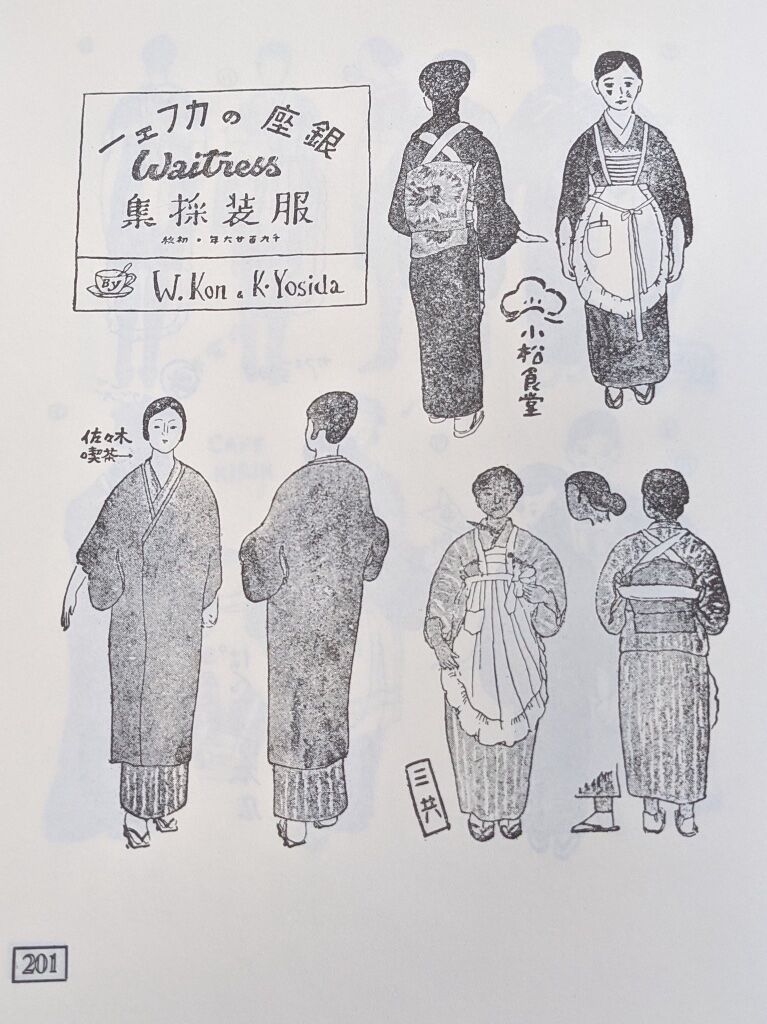 銀座のカフェー
Waitress
服装採集
千九百廿六年・初秋
By W. Kon & K. Yosida
小松食堂
佐々木
喫茶→
三共
201